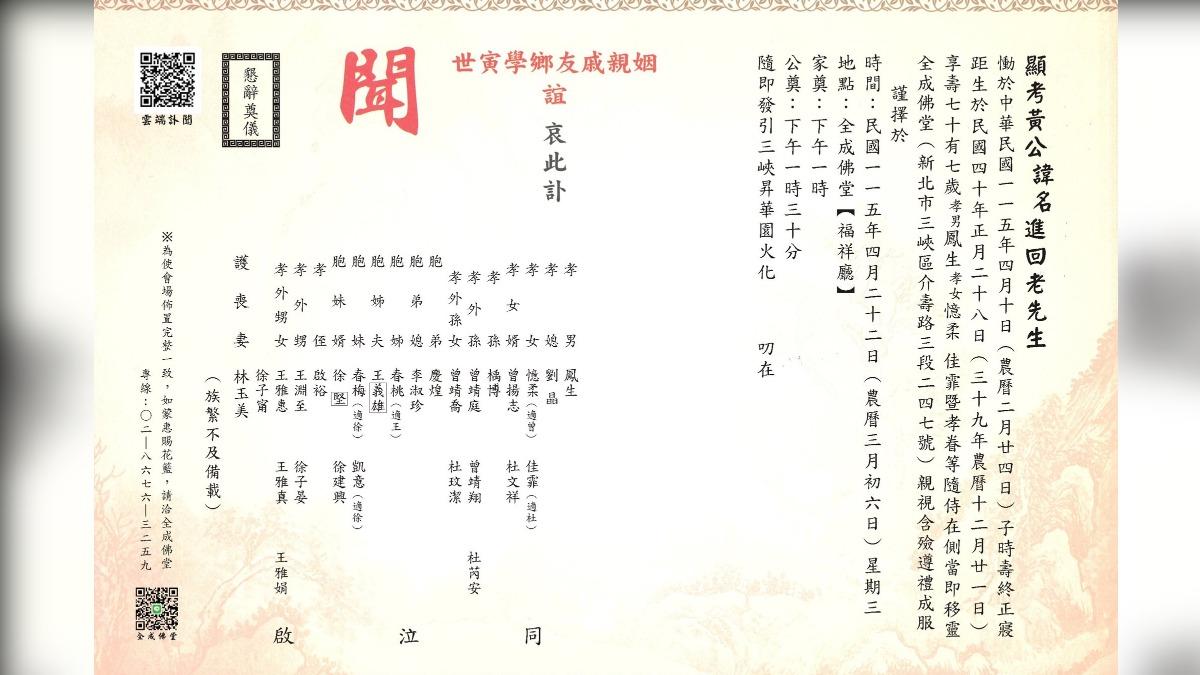 顯考黃公諱名進回老先生
慟於中華民國一一五年四月十日（農曆二月廿四日）子時壽終正寢
距生於民國四十年正月二十八日（三十九年農曆十二月廿一日）
享壽七十有七歲孝男鳳生孝女憶柔 佳霏暨孝眷等隨侍在側當即移靈
全成佛堂（新北市三峽區介壽路三段二四七號）親視含殮遵禮成服
謹擇於
時間：民國一一五年四月二十二日（農曆三月初六日）星期三
地點：全成佛堂【福祥廳】
家奠：下午一時
公奠：下午一時三十分
隨即發引三峽昇華園火化 叨在
世寅學鄉友戚親姻
誼 哀此訃
聞
孝男 鳳生
孝媳 劉晶
孝女 憶柔（適曾） 佳霏（適杜）
孝女婿 曾揚志 杜文祥
孝孫 楀博
孝外孫 曾靖庭 曾靖翔 杜芮安
孝外孫女 曾靖喬 杜玟潔
胞弟 慶煌
胞弟媳 李淑珍
胞姊 春桃（適王）
胞姊夫 王義雄
胞妹 春梅（適徐） 凱意（適徐）
胞妹婿 徐堅 徐建興
孝姪 啟裕
孝外甥 王淵至 徐子晏
孝外甥女 王雅惠 王雅真 王雅娟
徐子甯
護喪妻 林玉美
（族繁不及備載）
同 泣 啟
懇辭奠儀
雲端訃聞
※為使會場佈置完整一致，如蒙惠賜花籃，請洽全成佛堂
專線：〇二—八六七六—三二五九
全成佛堂